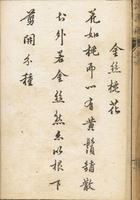 金絲桃花
花如桃而心有黃鬚鋪散
出外若金絲然亦以根下
劈開分種